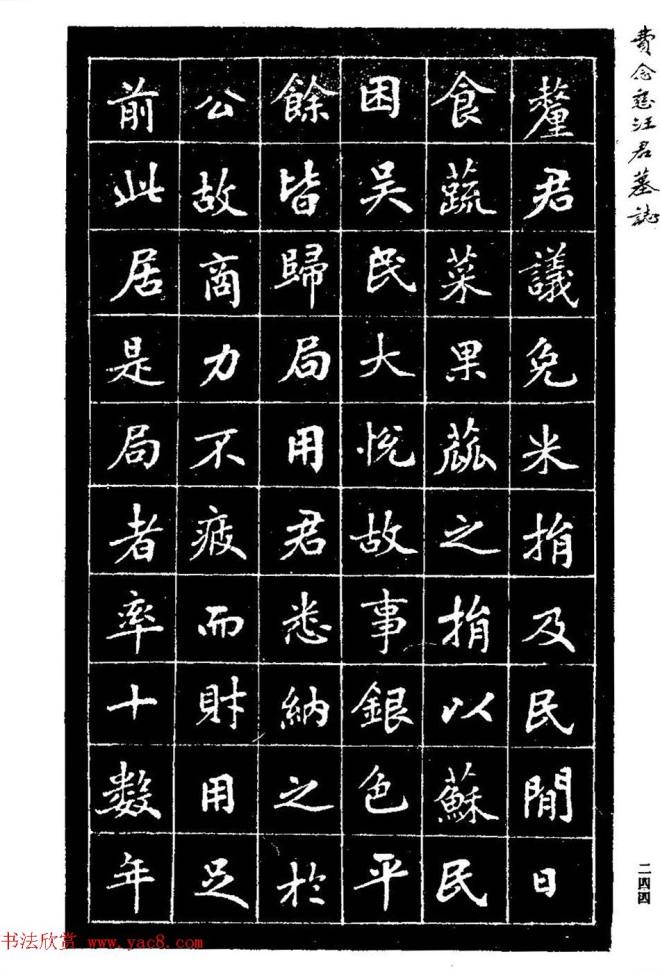 費念慈汪君墓誌
釐君議免米捐及民間日
食蔬菜果蓏之捐以蘇民
困吴民大悅故事銀色平
餘皆歸局用君悉納之於
公故商力不疲而財用足
前此居是局者率十數年
二四四
书法欣赏 www.yac8.com